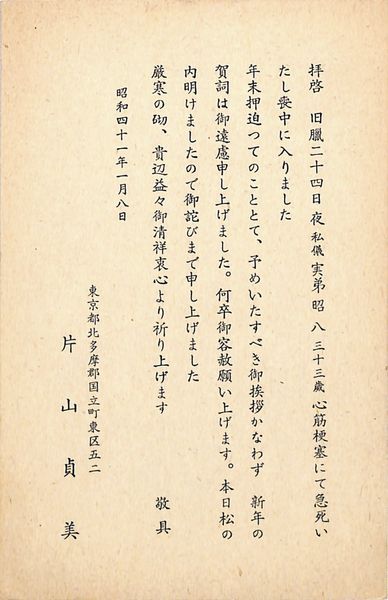 拝啓　旧臘二十四日夜私儀実弟昭八三十三歳心筋梗塞にて急死い
たし喪中に入りました
年末押迫つてのこととて、予めいたすべき御挨拶かなわず　新年の
賀詞は御遠慮申し上げました。何卒御容赦願い上げます。本日松の
内明けましたので御詫びまで申し上げました
厳寒の砌、貴辺益々御清祥衷心より祈り上げます　敬具
昭和四十一年一月八日
東京都北多摩郡国立町東区五二
片山貞美